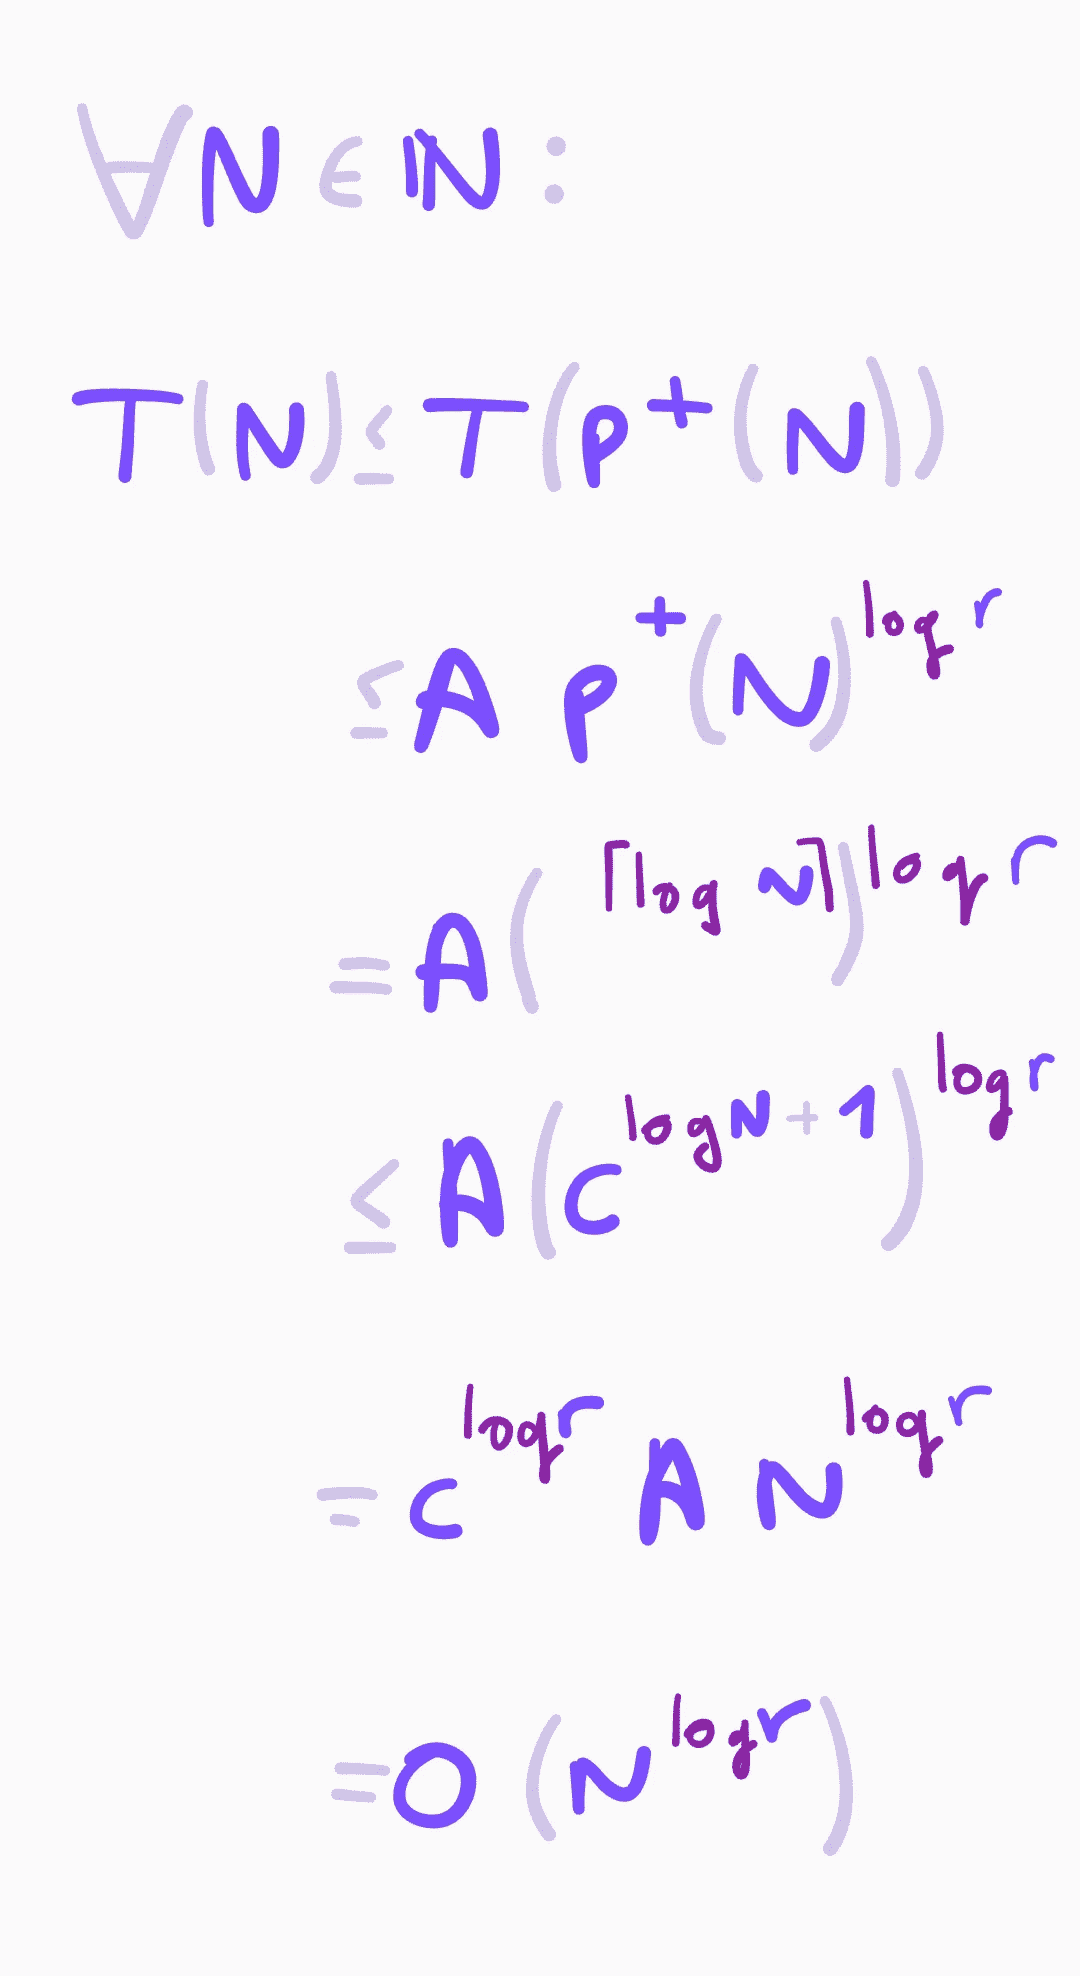 ∀N ∈ ℕ :
T(N) ≤ T(p⁺(N))
≤ A p⁺(N)^{log r}
= A( ^{⌈log N⌉})^{log r}
≤ A(c^{log N + 1})^{log r}
= c^{log r} A N^{log r}
= O(N^{log r})